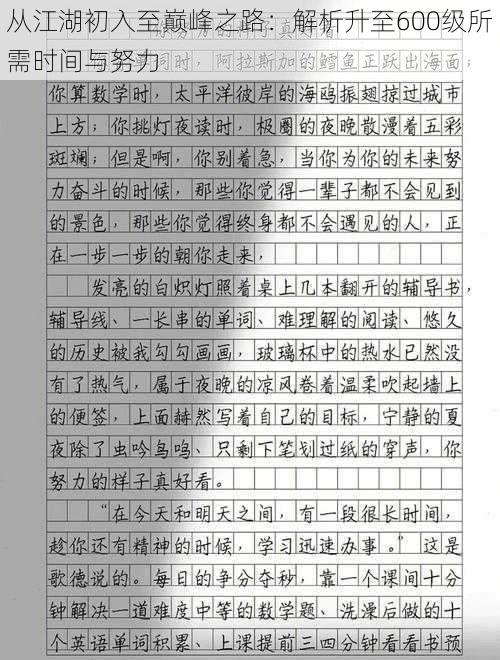 从江湖初入至巅峰之路：解析升至600级所
需时间与努力
词时，阿拉斯加的鳕鱼正跃出海面；
你算数学时，太平洋彼岸的海鸥振翅掠过城市
上方；你挑灯夜读时，极圈的夜晚散漫着五彩
斑斓；但是啊，你别着急，当你为你的未来努
力奋斗的时候，那些你觉得一辈子都不会见到
的景色，那些你觉得终身都不会遇见的人，正
在一步一步的朝你走来，
发亮的白炽灯照着桌上几本翻开的辅导书，
辅导线、一长串的单词、难理解的阅读、悠久
的历史被我勾勾画画，玻璃杯中的热水已然没
有了热气，属于夜晚的凉风卷着温柔吹起墙上
的便签，上面赫然写着自己的目标，宁静的夏
夜除了虫吟鸟鸣、只剩下笔划过纸的穿声，你
努力的样子真好看。
“在今天和明天之间，有一段很长时间，
趁你还有精神的时候，学习迅速办事。”这是
歌德说的。每日的争分夺秒，靠一个课间十分
钟解决一道难度中等的数学题、洗澡后做的十
个英语单词积累、上课提前三四分钟看看书预